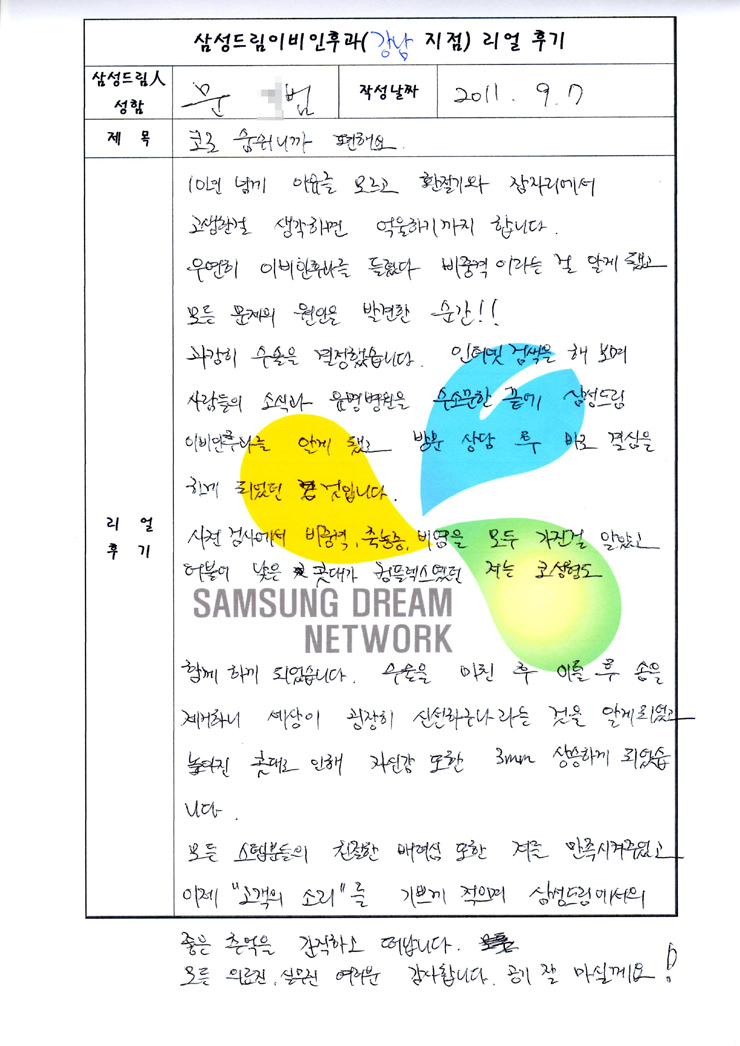 삼성드림이비인후과(강남 지점) 리얼 후기
삼성드림人 성함 문 범 작성날짜 2011. 9. 7
제 목 코로 숨쉬니까 편해요.
리 얼 후 기
10년 넘게 이유를 모르고 환절기와 잠자리에서
고생한걸 생각하면 억울하기까지 합니다.
우연히 이비인후과를 들렸다 비중격이라는 걸 알게 됐고
모든 문제의 원인을 발견한 순간!!
과감히 수술을 결정했습니다. 인터넷 검색을 해 보며
사람들의 소식과 유명병원을 수소문한 끝에 삼성드림
이비인후과를 알게 됐고 방문 상담 후 바로 결심을
하게 되었던 것입니다.
사전 검사에서 비중격, 축농증, 비염을 모두 가진걸 알았고
더불어 낮은 콧대가 컴플렉스였던 저는 코성형도
SAMSUNG DREAM
NETWORK
함께 하게 되었습니다. 수술을 마친 후 이틀 후 솜을
제거하니 세상이 굉장히 신선하구나 라는 것을 알게되었고
높아진 콧대로 인해 자신감 또한 3mm 상승하게 되었습
니다.
모든 스텝분들의 친절한 배려심 또한 저를 만족시켜주었고
이제 "고객의 소리"를 기쁘게 적으며 삼성드림에서의
좋은 추억을 간직하고 떠납니다.
모든 의료진, 실무진 여러분 감사합니다. 공기 잘 마실게요!